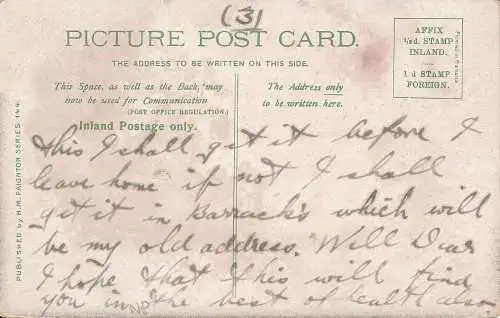 (3)
PICTURE POST CARD.
THE ADDRESS TO BE WRITTEN ON THIS SIDE.
AFFIX
½d. STAMP
INLAND.
1d STAMP
FOREIGN.
This Space, as well as the Back, may
now be used for Communication
(POST OFFICE REGULATION.)
Inland Postage only.
The Address only
to be written here.
PUBLISHED by H.M. PAIGNTON SERIES
this I shall get it before I
leave home if not I shall
get it in Barrack's which will
be my old address. Well Dear
I hope that this will find
you in the best of health also